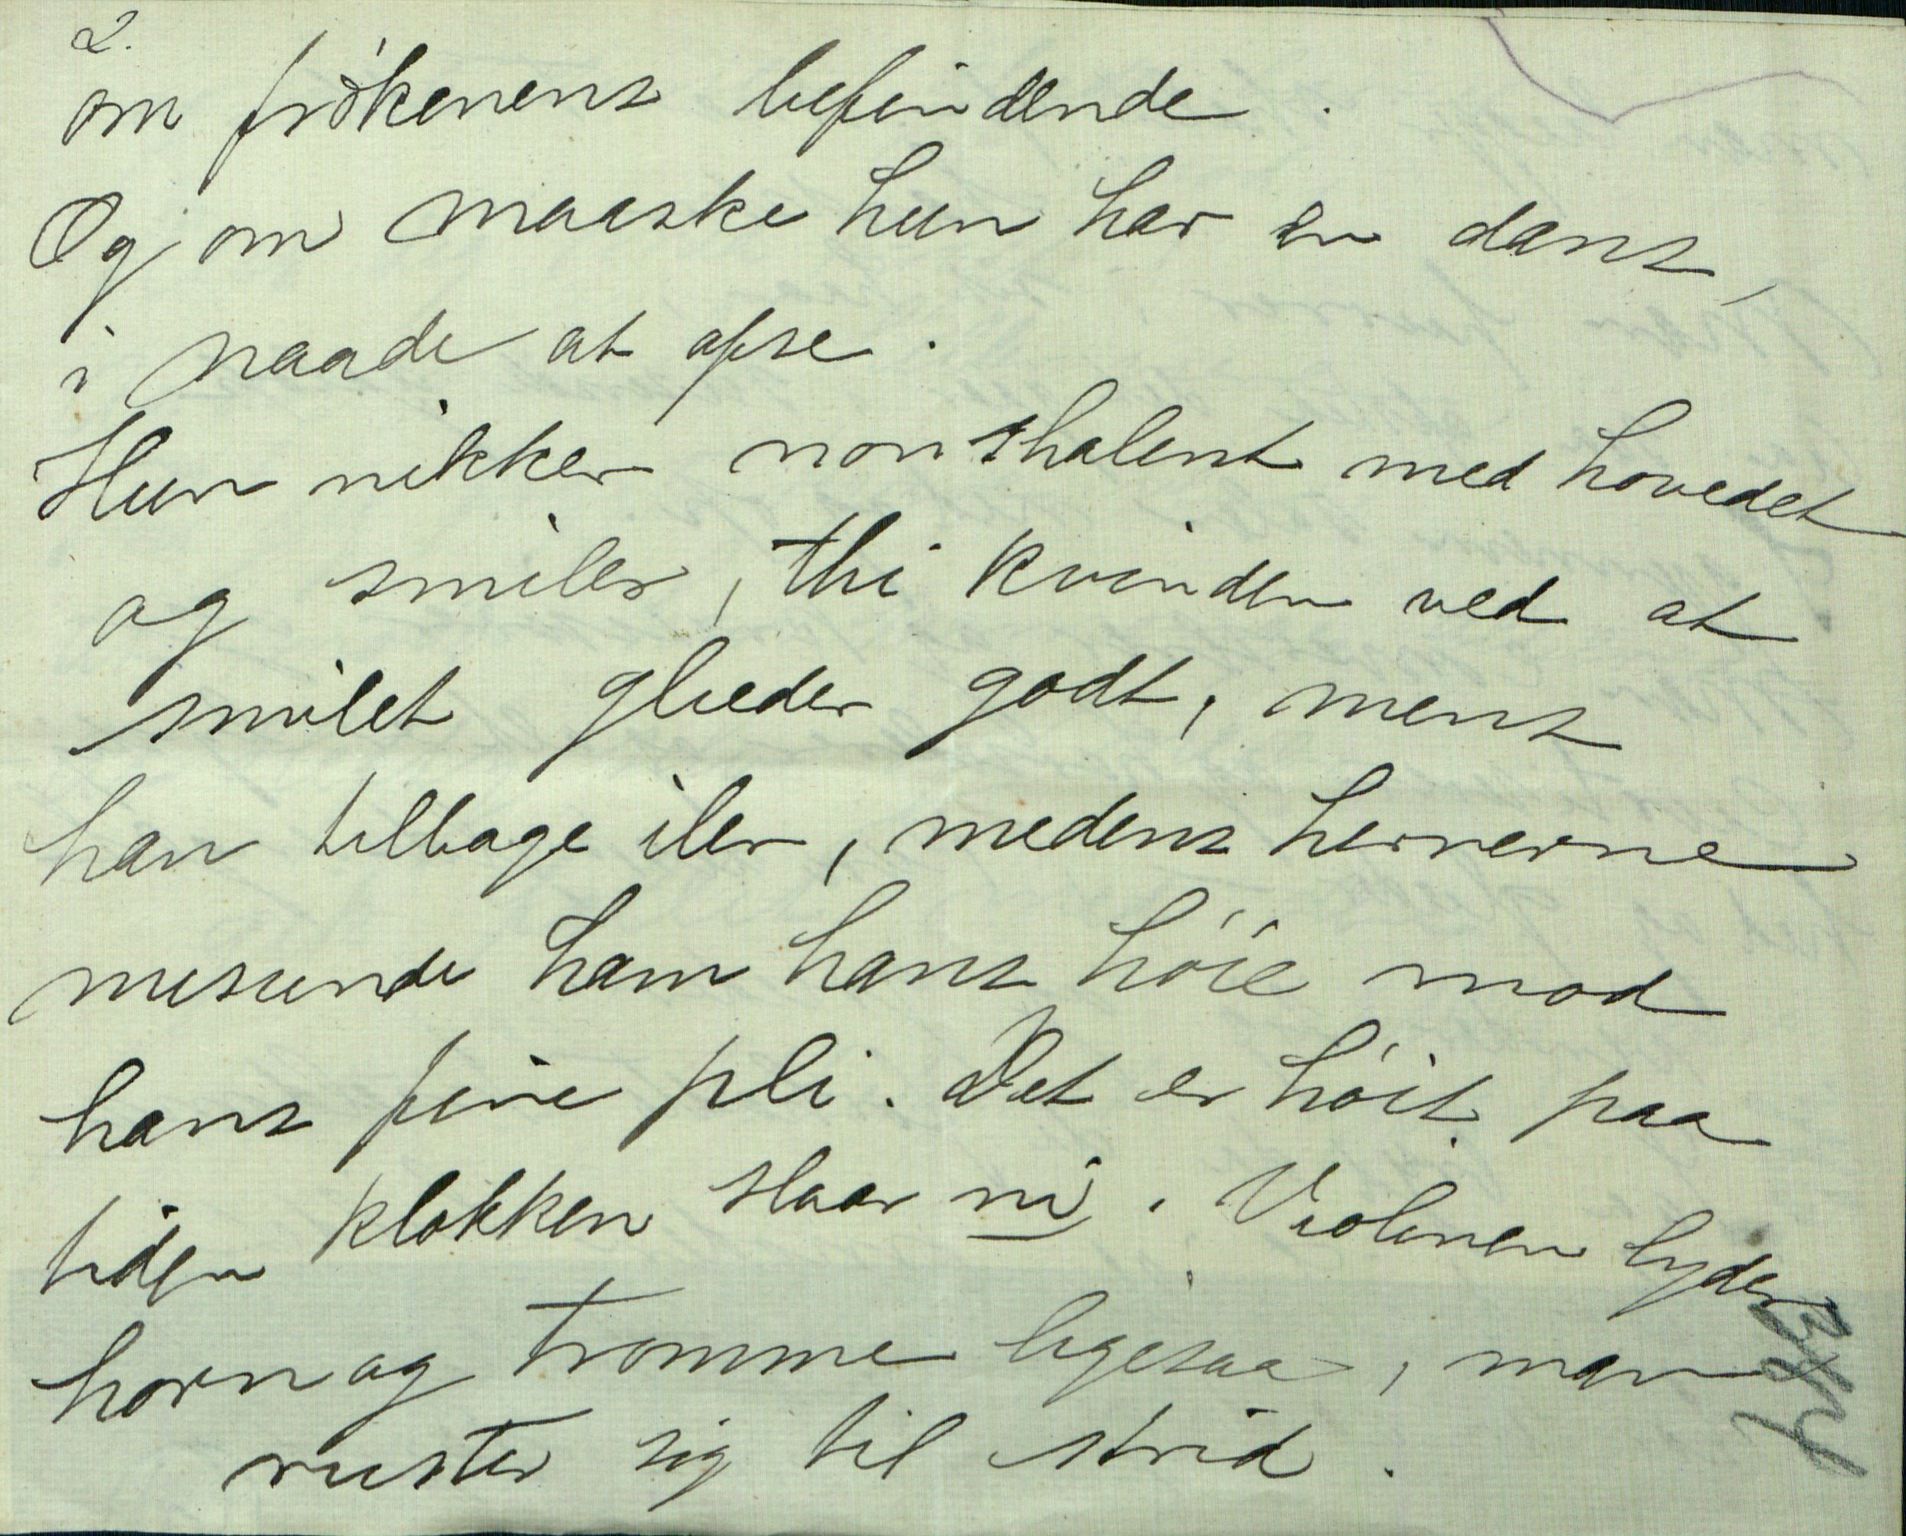 2.
om frökenens befindende.
Og om maaske hun har en dans,
i naade at afse.
Hun nikker nonshalent med hovedet
og smiler, thi kvinden ved at
smilet glæder godt, mens
han tilbage iler, medens herrerne
misunde ham hans höie mod
hans fine pli. Det er höit paa
tiden klokken slaar ni. Violinen lyder
horn og tromme ligesaa, man
ruster sig til strid.